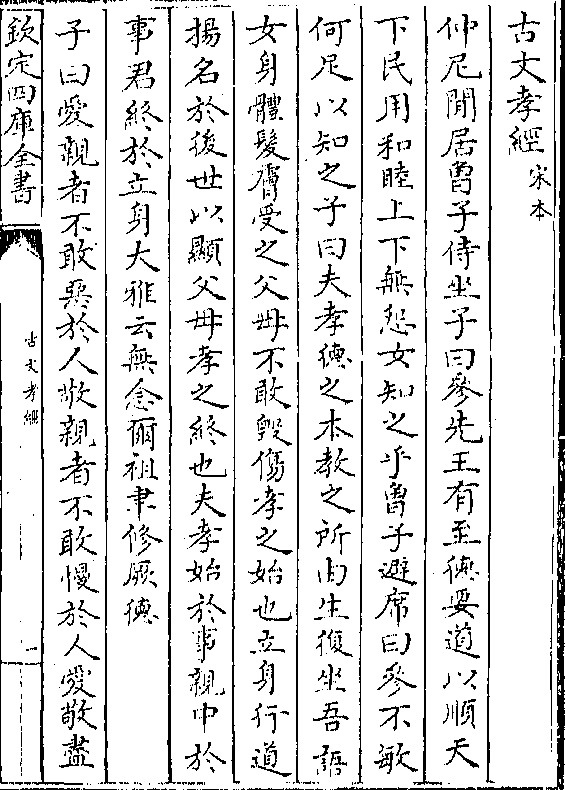 古文孝經 宋本
仲尼閒居曽子侍坐子曰參先王有至徳要道以順天
下民用和睦上下無怨女知之乎曽子避席曰參不敏
何足以知之子曰夫孝徳之本教之所由生復坐吾語
女身體髮膚受之父母不敢毀傷孝之始也立身行道
揚名於後世以顯父母孝之終也夫孝始於事親中於
事君終於立身大雅云無念爾祖聿修厥徳
子曰愛親者不敢惡於人敬親者不敢慢於人愛敬盡
欽定四庫全書
古文孝經
一